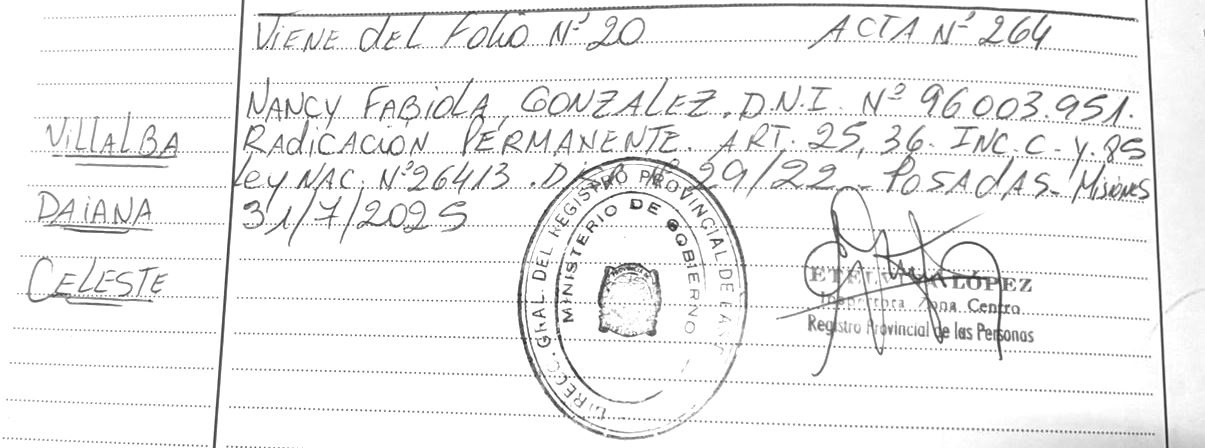 VIENE DEL FOLIO Nº 20 ACTA Nº 264
NANCY FABIOLA GONZALEZ. D.N.I. Nº 96003.951.
RADICACION PERMANENTE. ART. 25, 36. INC. C - Y. 85
Ley NAC. Nº 26413. 29/22 - POSADAS - Misiones
31/7/2025
VILLALBA
DAIANA
CELESTE
DIRECC. GRAL. DEL REGISTRO PROVINCIAL DE LAS
MINISTERIO DE GOBIERNO
LÓPEZ
Inspectora Zona Centro
Registro Provincial de las Personas